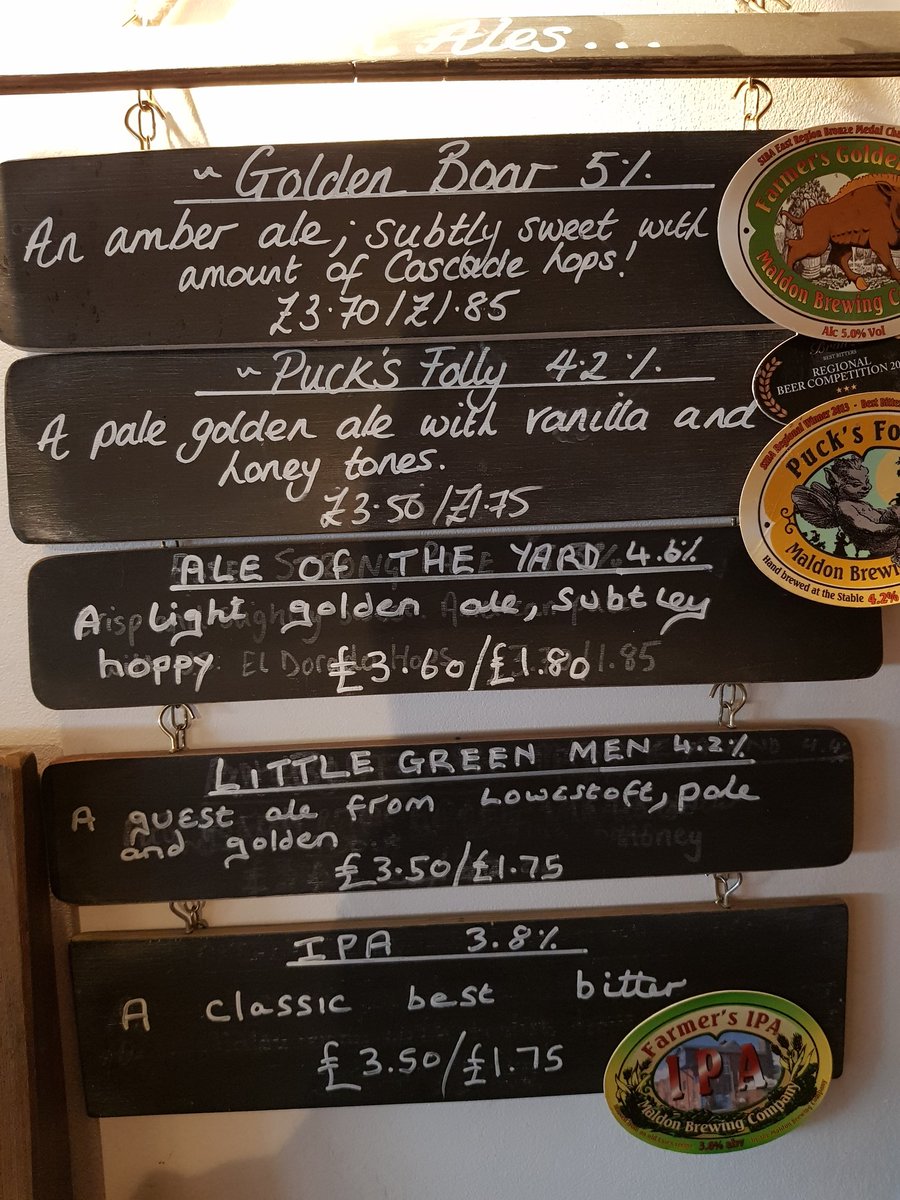 Ales...
~ Golden Boar 5%
An amber ale; subtly sweet with
amount of Cascade hops!
£3.70/£1.85
SIBA East Region Bronze Medal
Farmer's Golden
Maldon Brewing
Alc 5.0% Vol
~ Puck's Folly 4.2%
A pale golden ale with vanilla and
honey tones.
£3.50/£1.75
BEST BITTERS
REGIONAL
BEER COMPETITION
SIBA Regional Winner 2013 - Best
Puck's
Maldon
Hand brewed at the Stable 4.2%
ALE OF THE YARD 4.6%
A light golden ale, subtley
hoppy £3.60/£1.80
EL Dorado Hops 1.85
LITTLE GREEN MEN 4.2%
A guest ale from Lowestoft, pale
and golden
Honey
£3.50/£1.75
IPA 3.8%
A classic best bitter
£3.50/£1.75
Farmer's IPA
IPA
Maldon Brewing Company
3.8% abv